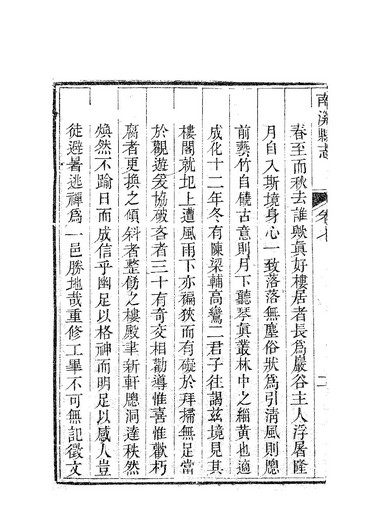 南溪縣志
卷七
二
春至而秋去誰歟眞好樓居者長爲巖谷主人浮屠隆
月自入斯境身心一致落落無塵俗狀爲引清風則牕
前藝竹自饒古意則月下聽琴眞叢林中之緇黃也適
成化十二年冬有陳梁輔高鸞二君子往謁茲境見其
樓閣就圮上遭風雨下亦褊狹而有礙於拜掃無足當
於觀遊爰協破吝者三十有奇交相勸導惟喜惟歡朽
腐者更換之傾斜者整飭之樓殿聿新軒牕洞達秩然
煥然不踰日而成信乎幽足以格神而明足以感人豈
徒避暑逃禪爲一邑勝地哉重修工畢不可無記徵文